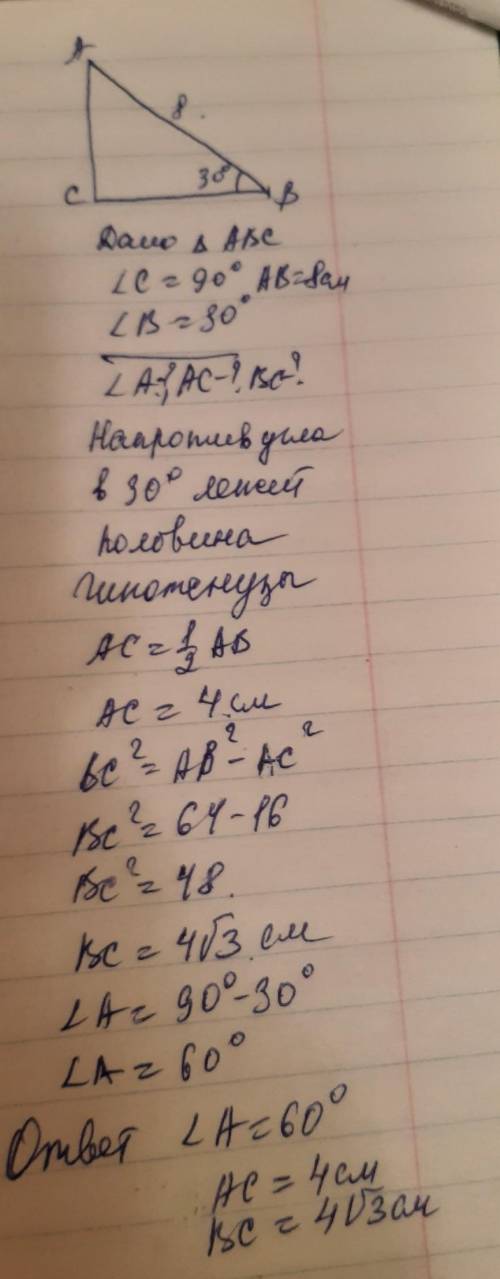 A
8
30°
C
B
Дано Δ ABC
∠C = 90° AB=8см
∠B = 30°
∠A-?, AC-? BC-?
Напротив угла
в 30° лежит
половина
гипотенузы
AC = 1/2 AB
AC = 4 см
BC² = AB² - AC²
BC² = 64 - 16
BC² = 48.
BC = 4√3 см
∠A = 90° - 30°
∠A = 60°
Ответ ∠A = 60°
AC = 4 см
BC = 4√3 см